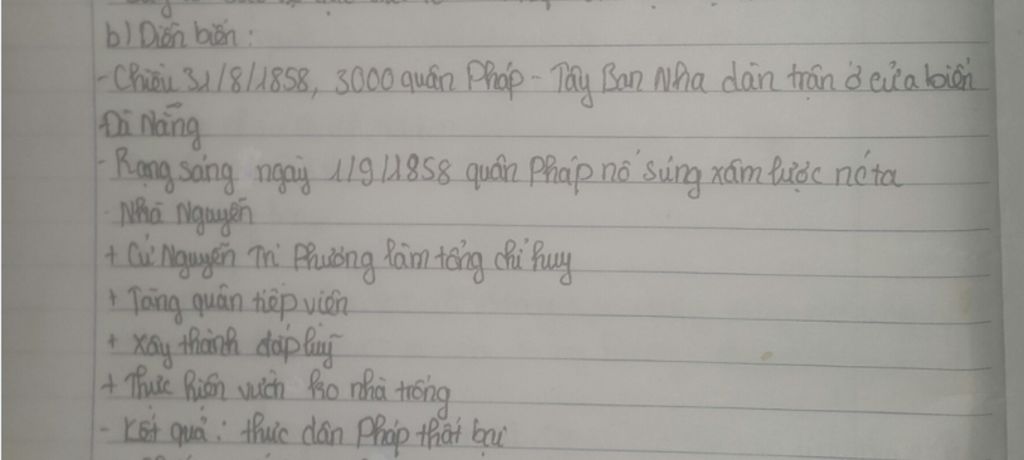 b) Diễn biến:
- Chiều 31/8/1858, 3000 quân Pháp - Tây Ban Nha dàn trận ở cửa biển
Đà Nẵng
- Rạng sáng ngày 1/9/1858 quân Pháp nổ súng xâm lược nc ta
- Nhà Nguyễn
+ Cử Nguyễn Tri Phương làm tổng chỉ huy
+ Tăng quân tiếp viện
+ Xây thành đắp lũy
+ Thực hiện vườn ko nhà trống
- Kết quả: thực dân Pháp thất bại